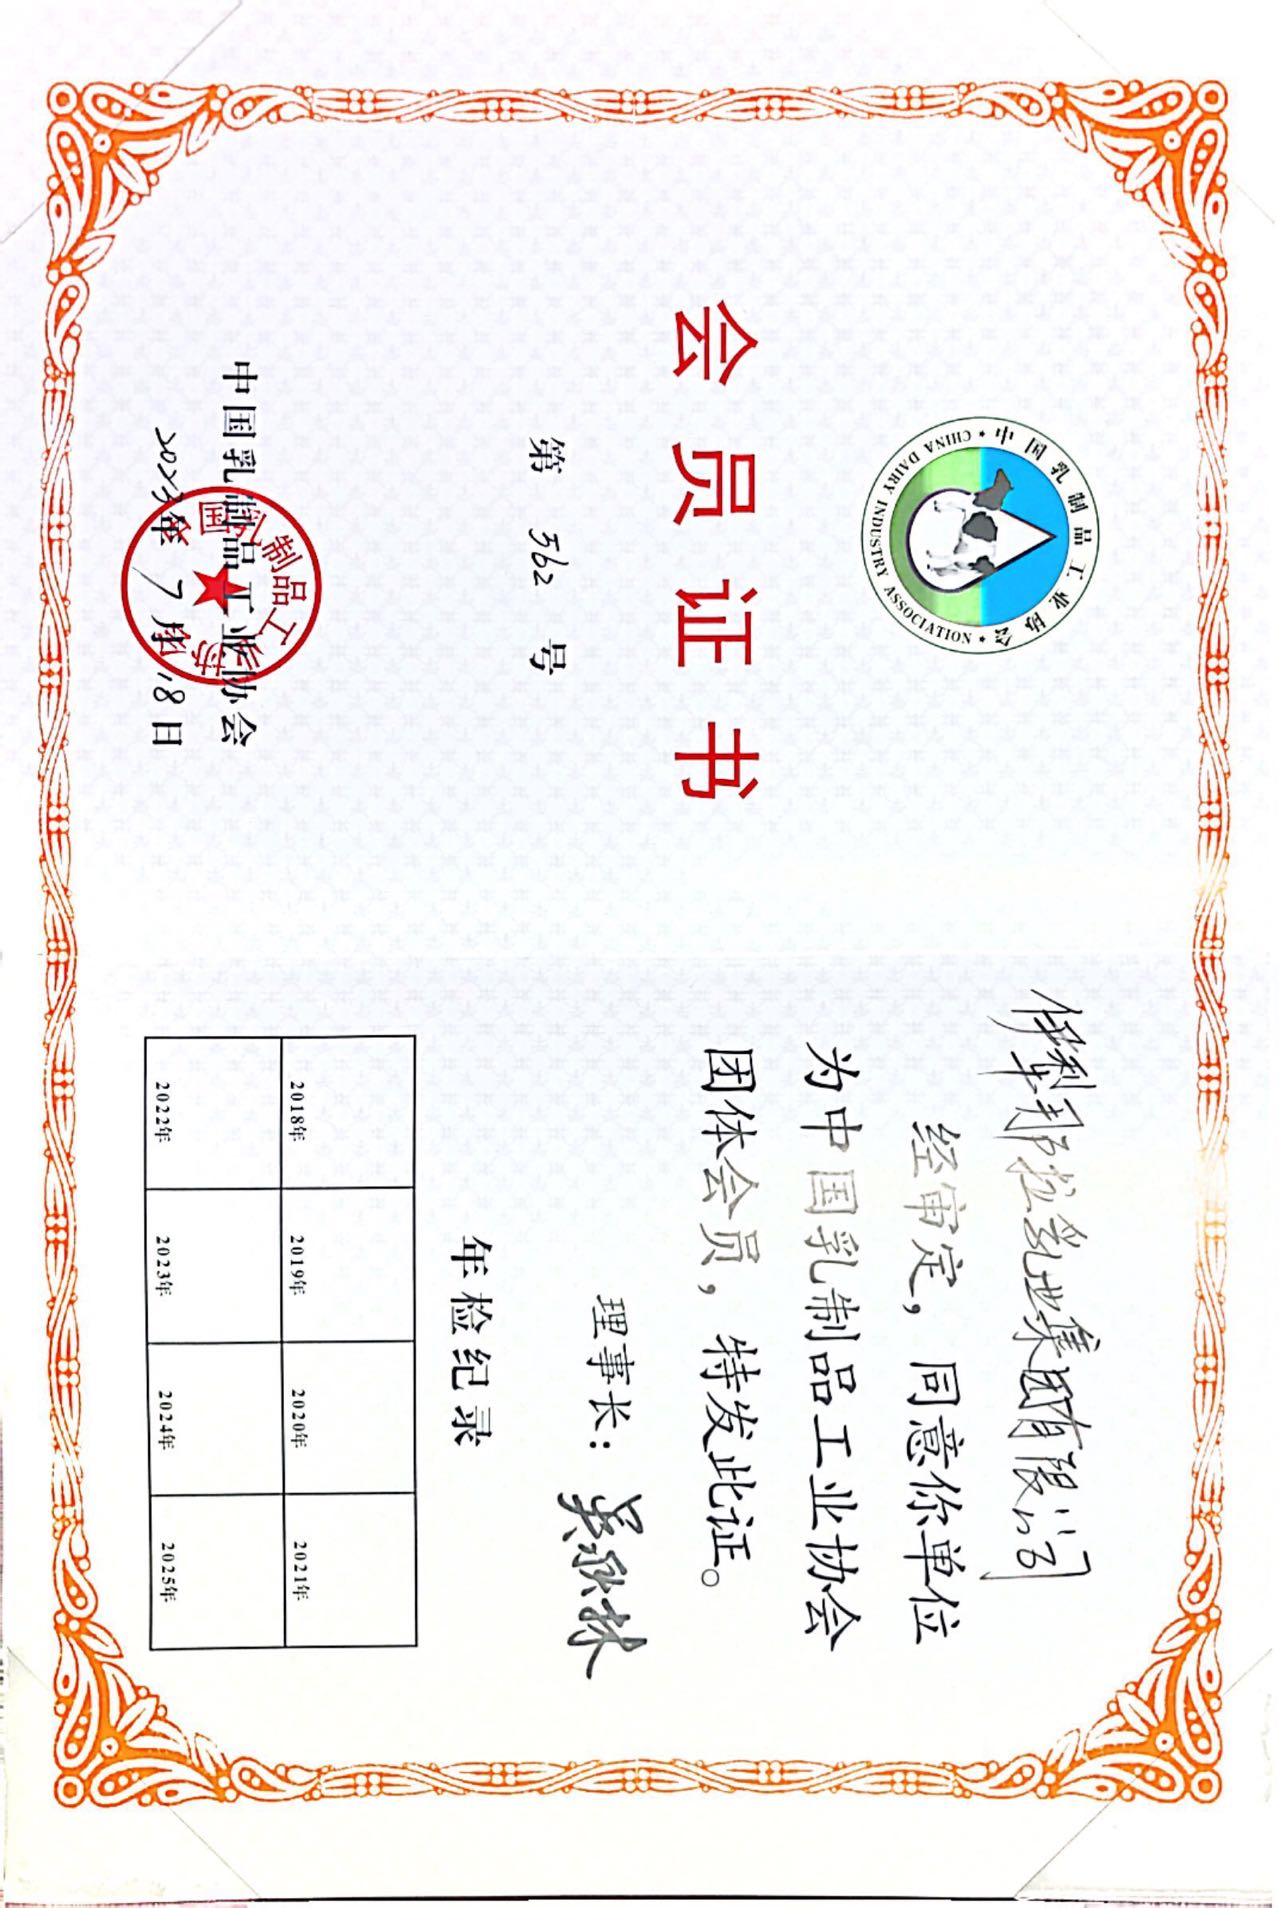 中国乳制品工业协会
CHINA DAIRY INDUSTRY ASSOCIATION
会员证书
第 562 号
中国乳制品工业协会
2023年 7月18日
伊犁那拉乳业集团有限公司
经审定，同意你单位
为中国乳制品工业协会
团体会员，特发此证。
理事长：
年检纪录
2018年 2019年 2020年 2021年
2022年 2023年 2024年 2025年